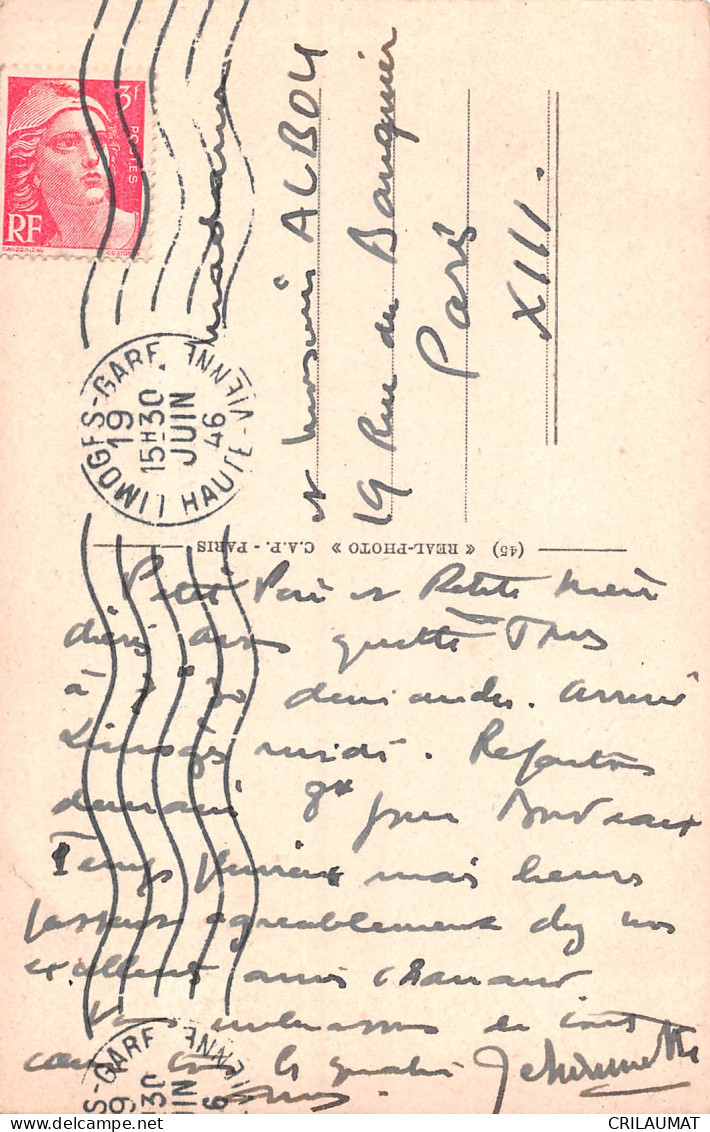 3f
POSTES
RF
LIMOGES-GARE
19
15H30
JUIN
46
HAUTE-VIENNE
Madame
et Monsieur ALBOU
19 Rue du Banquier
Paris
XIII.
(45) « REAL-PHOTO » C.A.P. - PARIS
Petit Père et Petite Mère
chéris avons quitté
à demi Arrivés
Limoges midi. Repartons
demain 8h pour Bordeaux
Temps pluvieux mais heures
passées agréablement chez nos
excellents amis
Vous embrassons de tout
cœur tous les quatre
S-GARE
VIENNE
CRILAUMAT